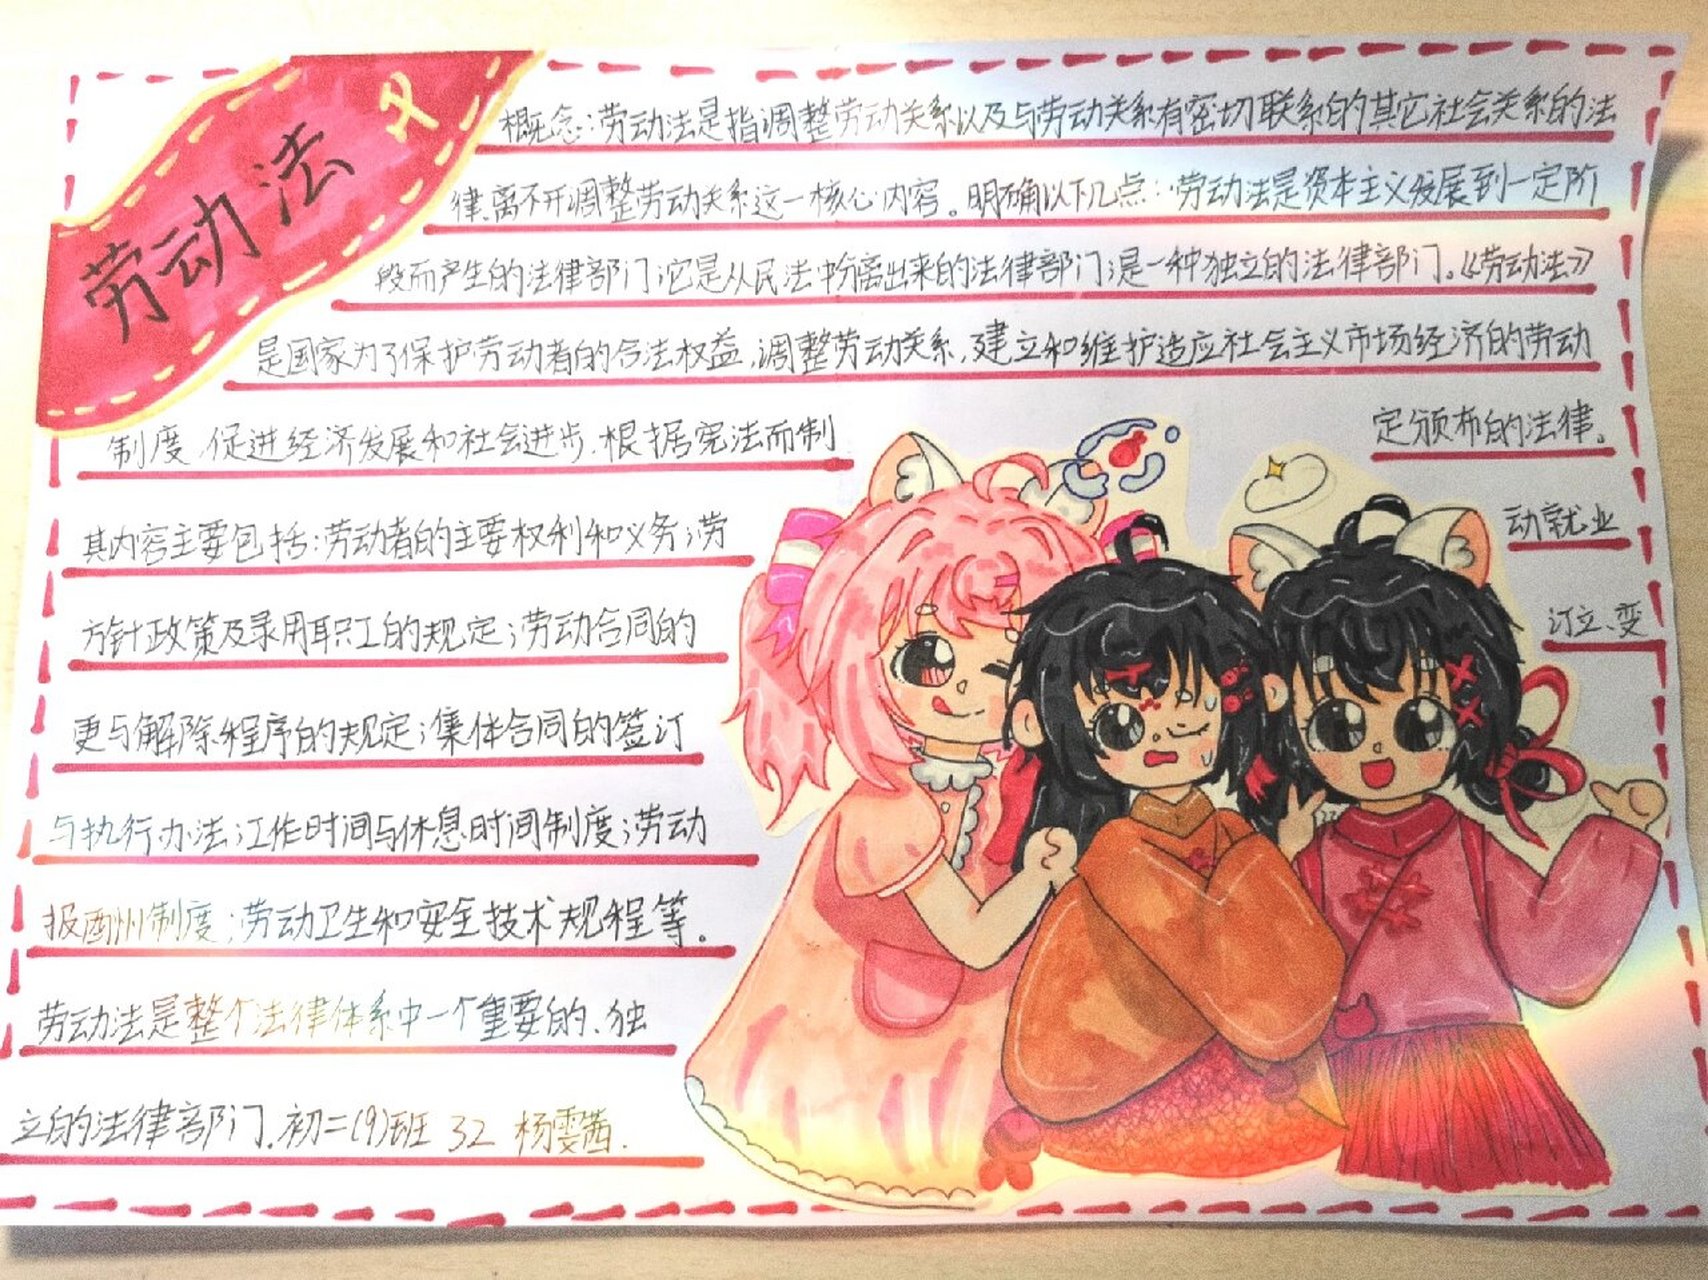 劳动法
概念:劳动法是指调整劳动关系以及与劳动关系有密切联系的其它社会关系的法
律,离不开调整劳动关系这一核心内容。明确以下几点:劳动法是资本主义发展到一定阶
段而产生的法律部门;它是从民法中分离出来的法律部门;是一种独立的法律部门。《劳动法》
是国家为了保护劳动者的合法权益,调整劳动关系,建立和维护适应社会主义市场经济的劳动
制度,促进经济发展和社会进步,根据宪法而制 定颁布的法律。
其内容主要包括:劳动者的主要权利和义务;劳 动就业
方针政策及录用职工的规定;劳动合同的 订立、变
更与解除程序的规定;集体合同的签订
与执行办法;工作时间与休息时间制度;劳动
报酬制度;劳动卫生和安全技术规程等。
劳动法是整个法律体系中一个重要的、独
立的法律部门.初二(9)班 32 杨雯茜.